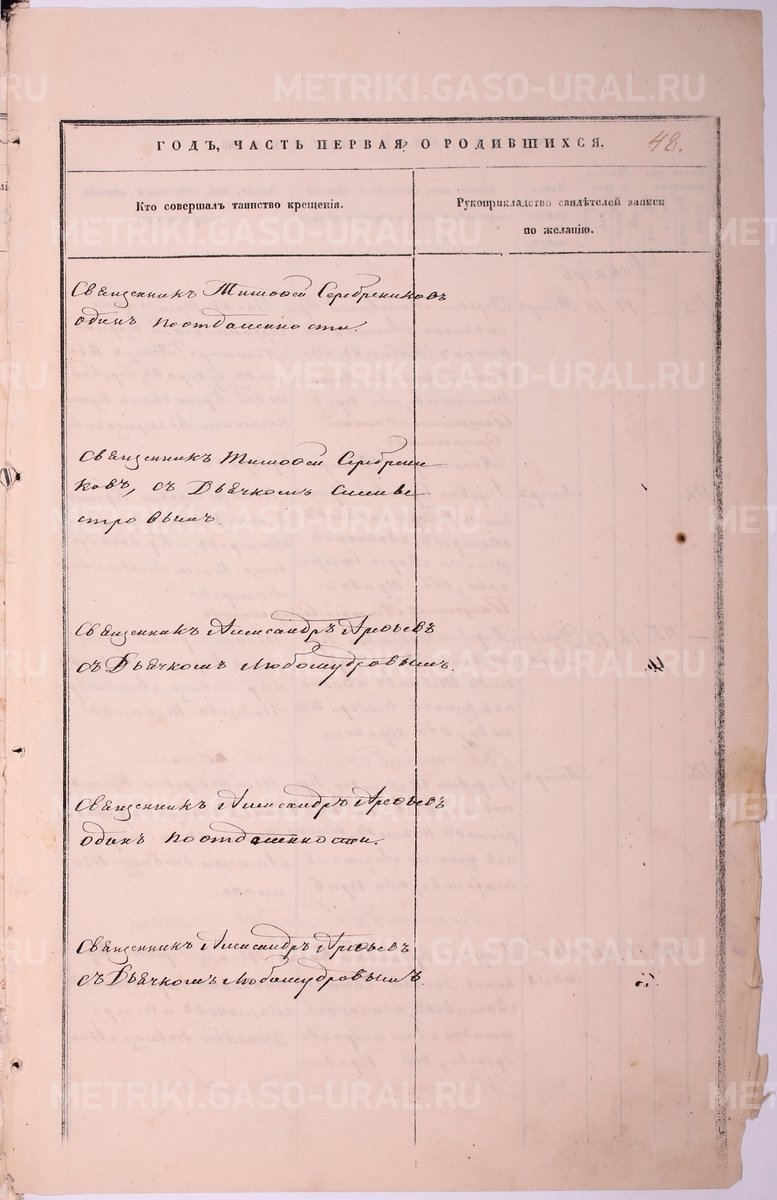 ГОДЪ, ЧАСТЬ ПЕРВАЯ, О РОДИВШИХСЯ. 48.
Кто совершалъ таинство крещенія.
Рукоприкладство свидѣтелей записи
по желанію.
Священникъ Тимофей Серебрениковъ
одинъ по отдаленности.
Священникъ Тимофей Серебрени
ковъ, съ Дьячкомъ Сильве
стровымъ.
Священникъ Александръ Арефьевъ
съ Дьячкомъ Любомудровымъ.
Священникъ Александръ Арефьевъ
одинъ по отдаленности.
Священникъ Александръ Арефьевъ
съ Дьячкомъ Любомудровымъ.
METRIKI.GASO-URAL.RU